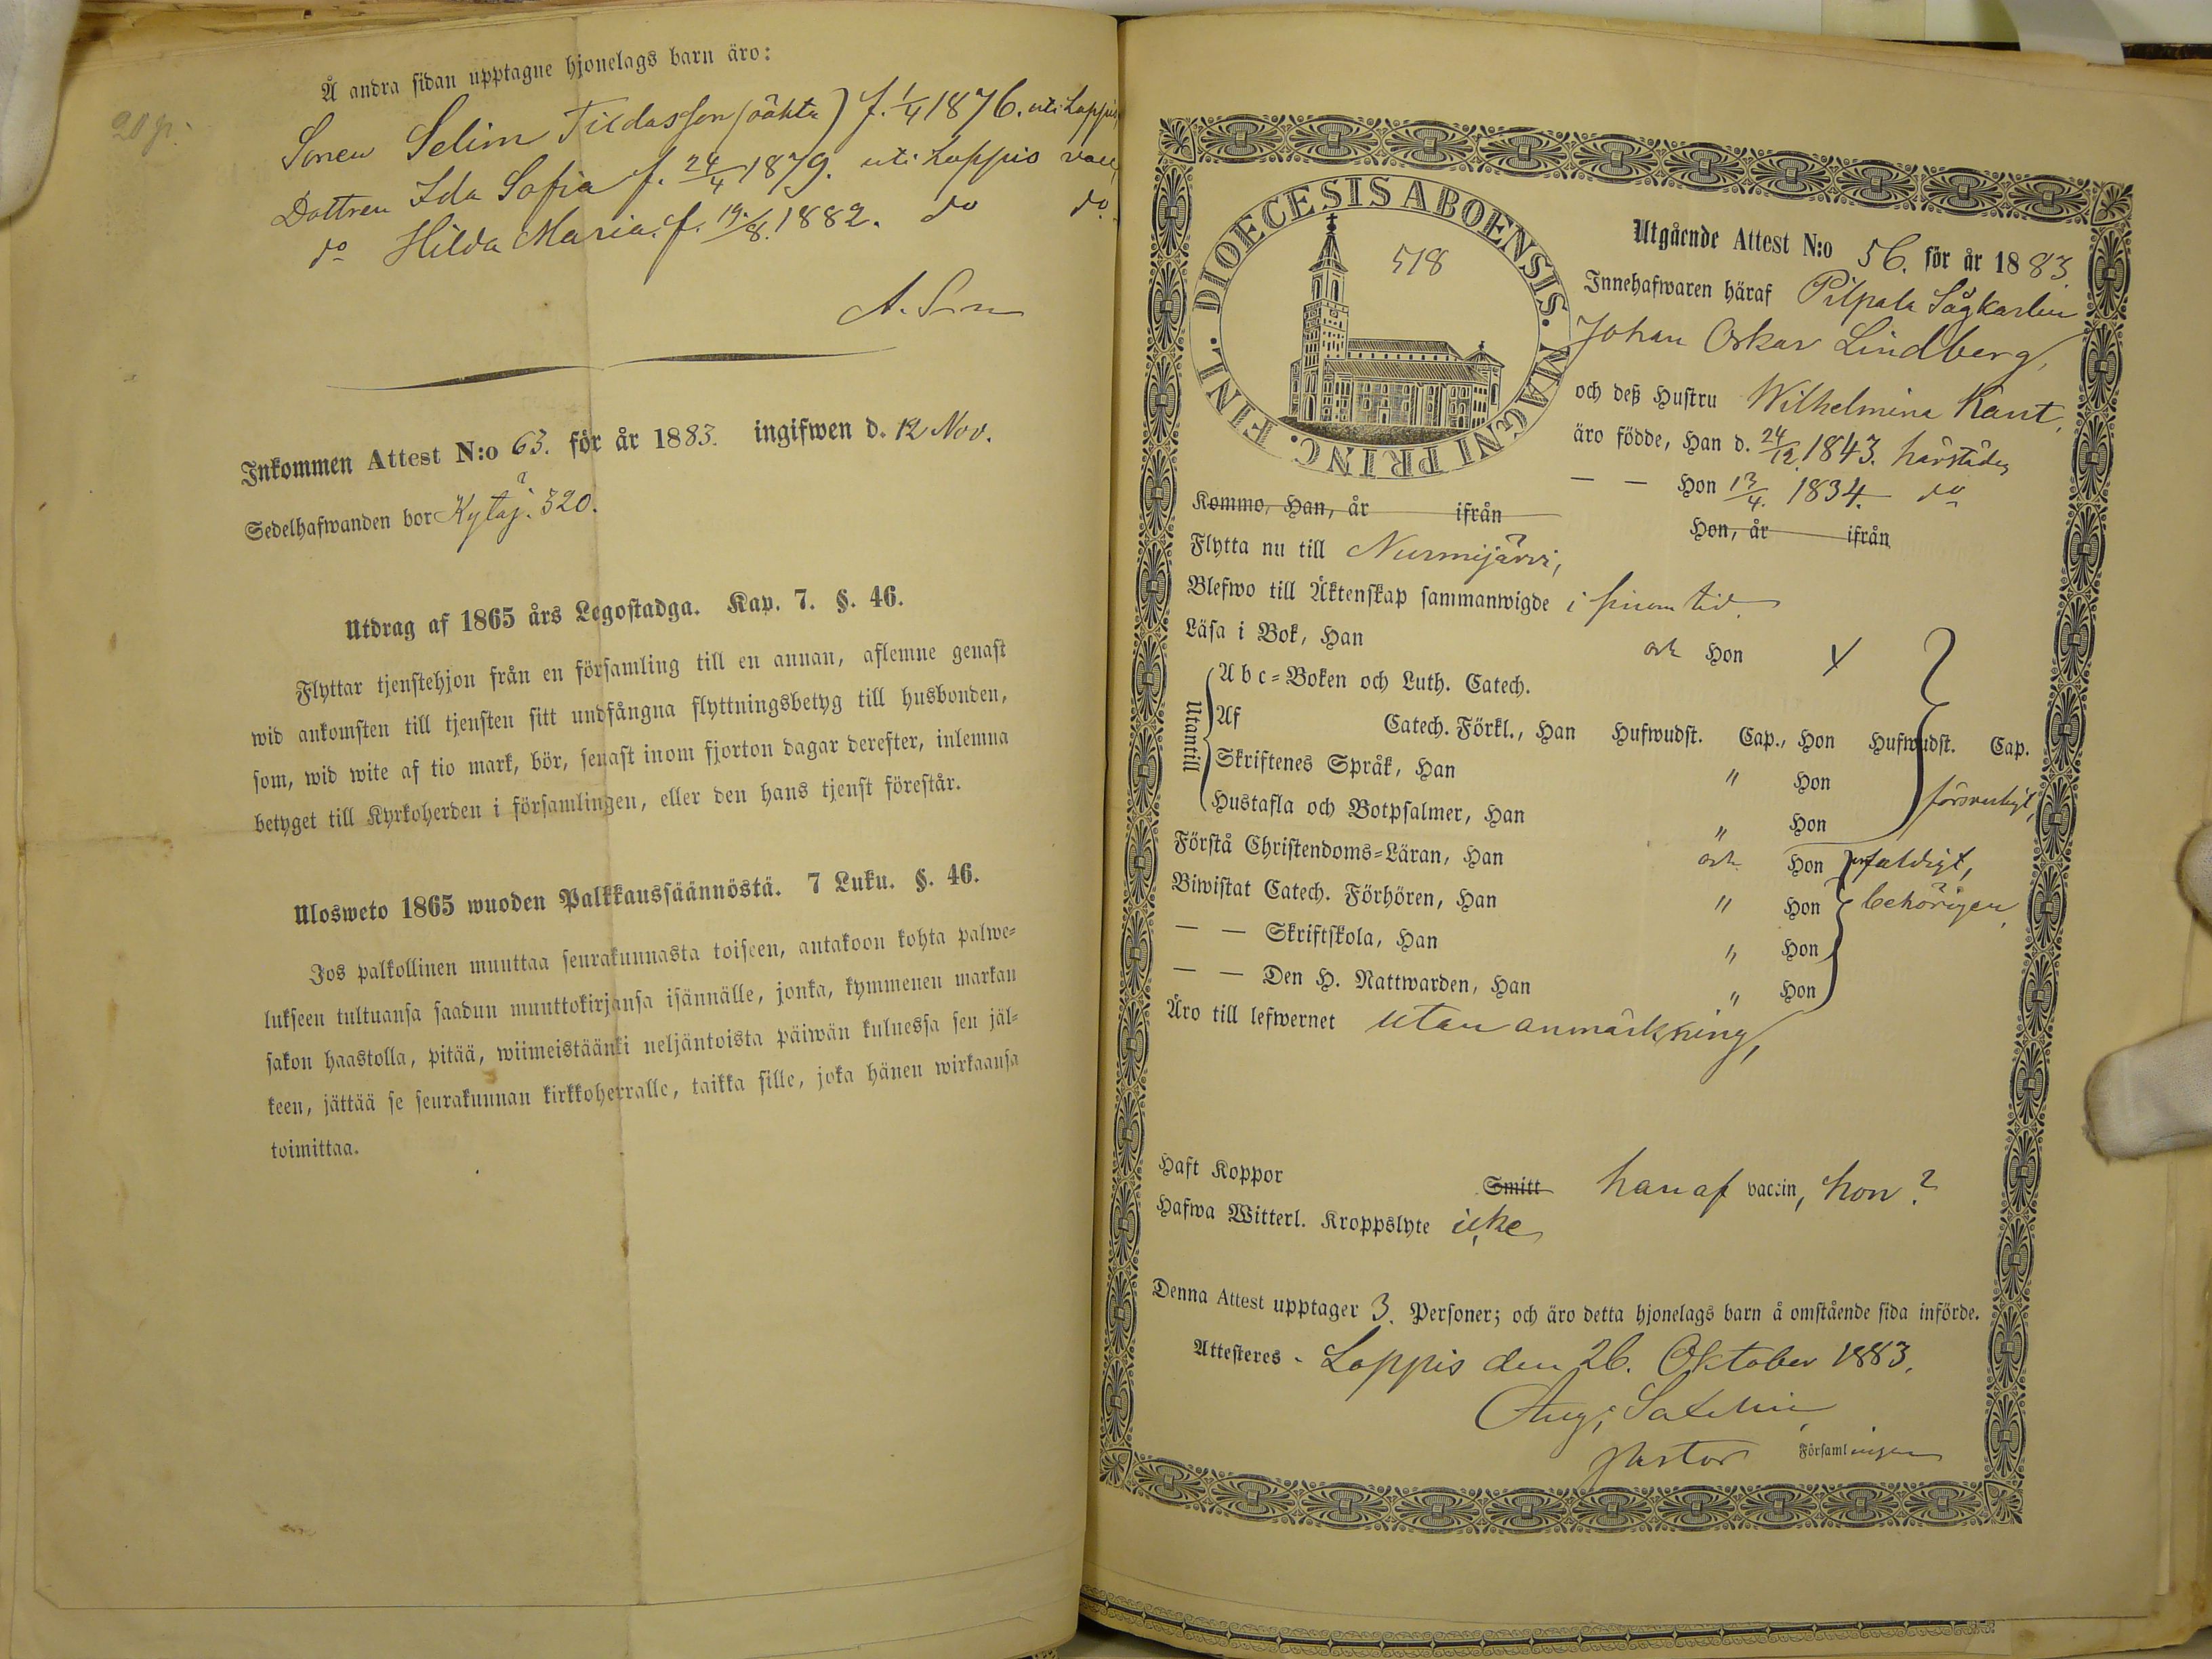 20 p.
Å andra sidan upptagne hjonelags barn äro:
Sonen Selim Tildasson (oäkta) f. 1/4 1876. uti Loppis
Dottren Ida Sofia f. 24/4 1879. uti Loppis vacc.
do Hilda Maria. f. 19/8. 1882. do do.
Inkommen Attest N:o 63. för år 1883. ingifwen d. 12 Nov.
Sedelhafwanden bor Kytäj. 320.
Utdrag af 1865 års Legostadga. Kap. 7. §. 46.
Flyttar tjenstehjon från en församling till en annan, aflemne genast
wid ankomsten till tjensten sitt undfångna flyttningsbetyg till husbonden,
som, wid wite af tio mark, bör, senast inom fjorton dagar derefter, inlemna
betyget till Kyrkoherden i församlingen, eller den hans tjenst förestår.
Ulosweto 1865 wuoden Palkkaussäännöstä. 7 Luku. §. 46.
Jos palkollinen muuttaa seurakunnasta toiseen, antakoon kohta palwe-
lukseen tultuansa saadun muuttokirjansa isännälle, jonka, kymmenen markan
sakon haastolla, pitää, wiimeistäänki neljäntoista päiwän kuluessa sen jäl-
keen, jättää se seurakunnan kirkkoherralle, taikka sille, joka hänen wirkaansa
toimittaa.
DIOECESIS ABOENSIS. MAGNI PRINC. FINL.
518
Utgående Attest N:o 56. för år 1883.
Innehafwaren häraf Pilpala Sågkarlen
Johan Oskar Lindberg,
och deß Hustru Wilhelmina Kant,
äro födde, Han d. 24/12 1843. härstädes
— — Hon 13/4. 1834. do
Kommo, Han, år ifrån Hon, år ifrån
Flytta nu till Nurmijärvi,
Blefwo till Äktenskap sammanwigde i sinom tid.
Läsa i Bok, Han och Hon
Utantill
Abc-Boken och Luth. Catech.
Af Catech. Förkl., Han Hufwudst. Cap., Hon Hufwudst. Cap.
Skriftenes Språk, Han " Hon
försvarligt,
Hustafla och Botpsalmer, Han " Hon
Förstå Christendoms-Läran, Han och Hon enfaldigt,
Biwistat Catech. Förhören, Han " Hon behörigen,
— — Skriftskola, Han " Hon
— — Den H. Nattwarden, Han " Hon
Äro till lefwernet utan anmärkning,
Haft Koppor Smitt han af vaccin, hon?
Hafwa Witterl. Kroppslyte icke
Denna Attest upptager 3. Personer; och äro detta hjonelags barn å omstående sida införde.
Attesteres - Loppis den 26. Oktober 1883.
Aug.
Pastor Församlingen